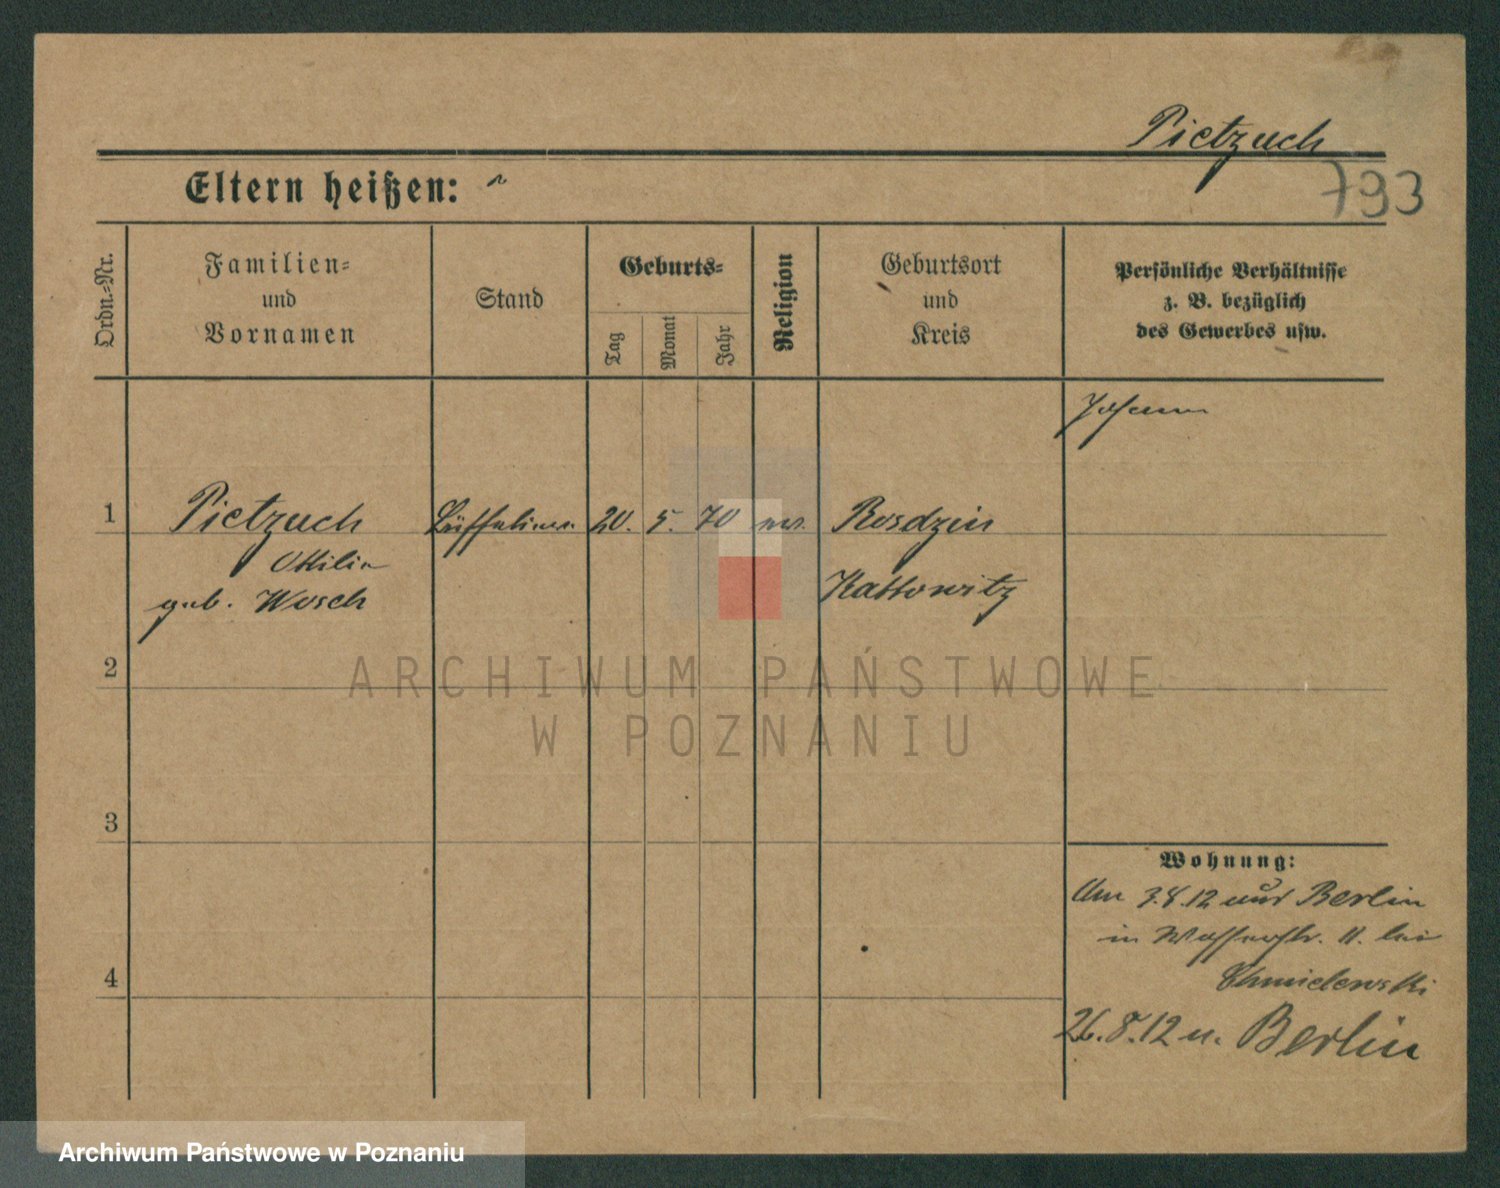 Pietzuch
Eltern heißen:
793
Ordn.-Nr.
Familien-
und
Vornamen
Stand
Geburts-
Tag
Monat
Jahr
Religion
Geburtsort
und
Kreis
Persönliche Verhältnisse
z. B. bezüglich
des Gewerbes usw.
1
Pietzuch
Ottilie
geb. Wosch
20. 5. 70
Rosdzin
Kattowitz
2
3
4
Wohnung:
Am 3.8.12 aus Berlin
in Wasserstr. 11. bei
Chmielewski
26.8.12 n. Berlin
ARCHIWUM PAŃSTWOWE
W POZNANIU
Archiwum Państwowe w Poznaniu